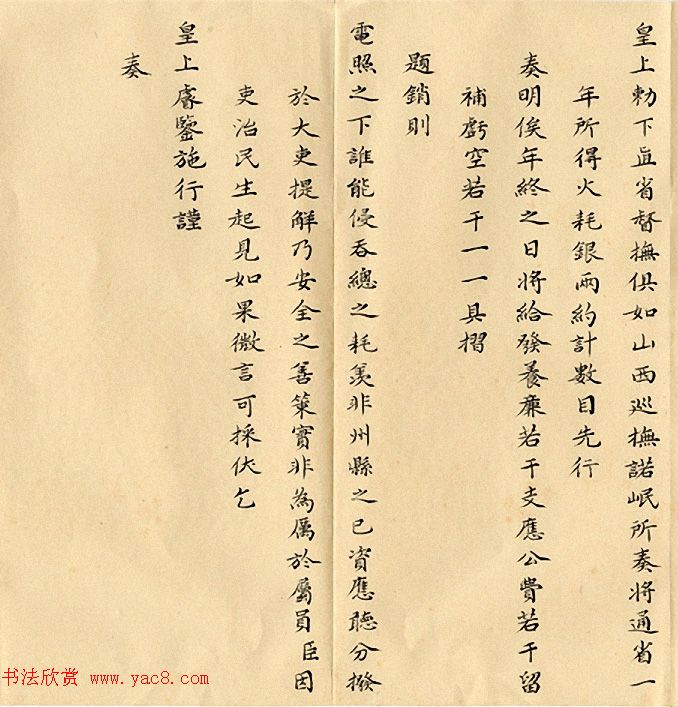 皇上勅下直省督撫俱如山西巡撫諾岷所奏將通省一
年所得火耗銀兩約計數目先行
奏明俟年終之日將給發養廉若干支應公費若干留
補虧空若干一一具摺
題銷則
電照之下誰能侵吞總之耗羨非州縣之己資應聽分撥
於大吏提解乃安全之善策實非為厲於屬員臣因
吏治民生起見如果微言可採伏乞
皇上睿鑒施行謹
奏
书法欣赏 www.yac8.com